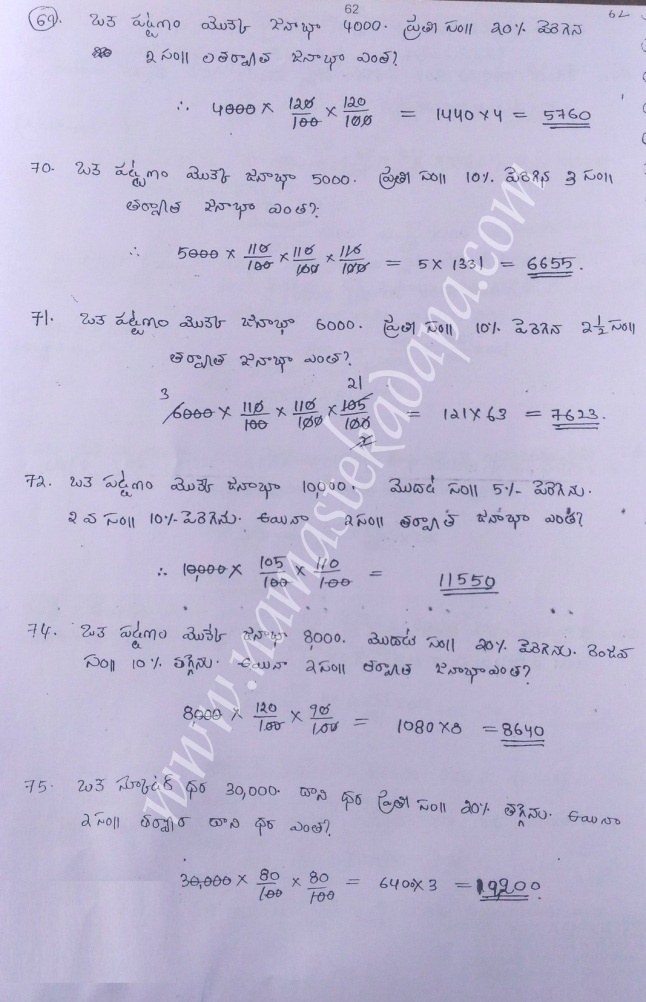 62
62
69. ఒక పట్టణం మొత్తం జనాభా 4000. ప్రతి సం|| 20% పెరిగిన
2 సం|| ల తర్వాత జనాభా ఎంత?
∴ 4000 × 120/100 × 120/100 = 1440×4 = 5760
70. ఒక పట్టణం మొత్తం జనాభా 5000. ప్రతి సం|| 10% పెరిగిన 3 సం||
తర్వాత జనాభా ఎంత?
∴ 5000 × 110/100 × 110/100 × 110/100 = 5 × 1331 = 6655.
71. ఒక పట్టణం మొత్తం జనాభా 6000. ప్రతి సం|| 10% పెరిగిన 2 1/2 సం||
తర్వాత జనాభా ఎంత?
3 21
6000 × 110/100 × 110/100 × 105/100 = 121×63 = 7623.
2
72. ఒక పట్టణం మొత్తం జనాభా 10,000. మొదట సం|| 5% పెరిగెను.
2 వ సం|| 10% పెరిగెను. అయినా 2 సం|| తర్వాత జనాభా ఎంత?
∴ 10,000 × 105/100 × 110/100 = 11550
74. ఒక పట్టణం మొత్తం జనాభా 8,000. మొదట సం|| 20% పెరిగెను. రెండవ
సం|| 10% తగ్గెను. అయినా 2 సం|| తర్వాత జనాభా ఎంత?
8000 × 120/100 × 90/100 = 1080×8 = 8640
75. ఒక స్కూటర్ ధర 30,000. దాని ధర ప్రతి సం|| 20% తగ్గెను. అయినా
2 సం|| తర్వాత దాని ధర ఎంత?
30,000 × 80/100 × 80/100 = 6400×3 = 19200.
www.namastekadapa.com